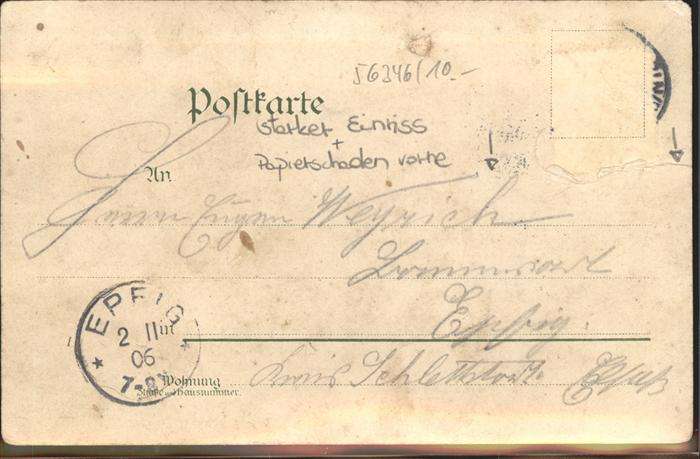 56346/10.-
Postkarte
starker Einriss
+
Papierschaden vorne
An
Herrn Eugen Weyrich
Epfig
EPFIG
2 11
06
7-8
Wohnung
Straße und Hausnummer
Kreis Schlettstadt Elsaß